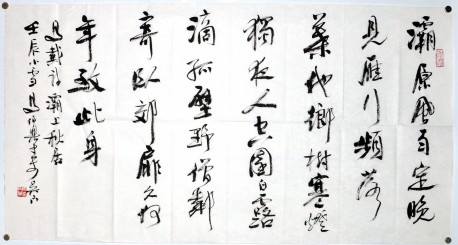 灞原風雨定晚
見雁行頻落
葉他鄉樹寒燈
獨夜人空園白露
滴孤壁野僧鄰
寄臥郊扉久何
年致此身
馬戴詩灞上秋居
壬辰小雪